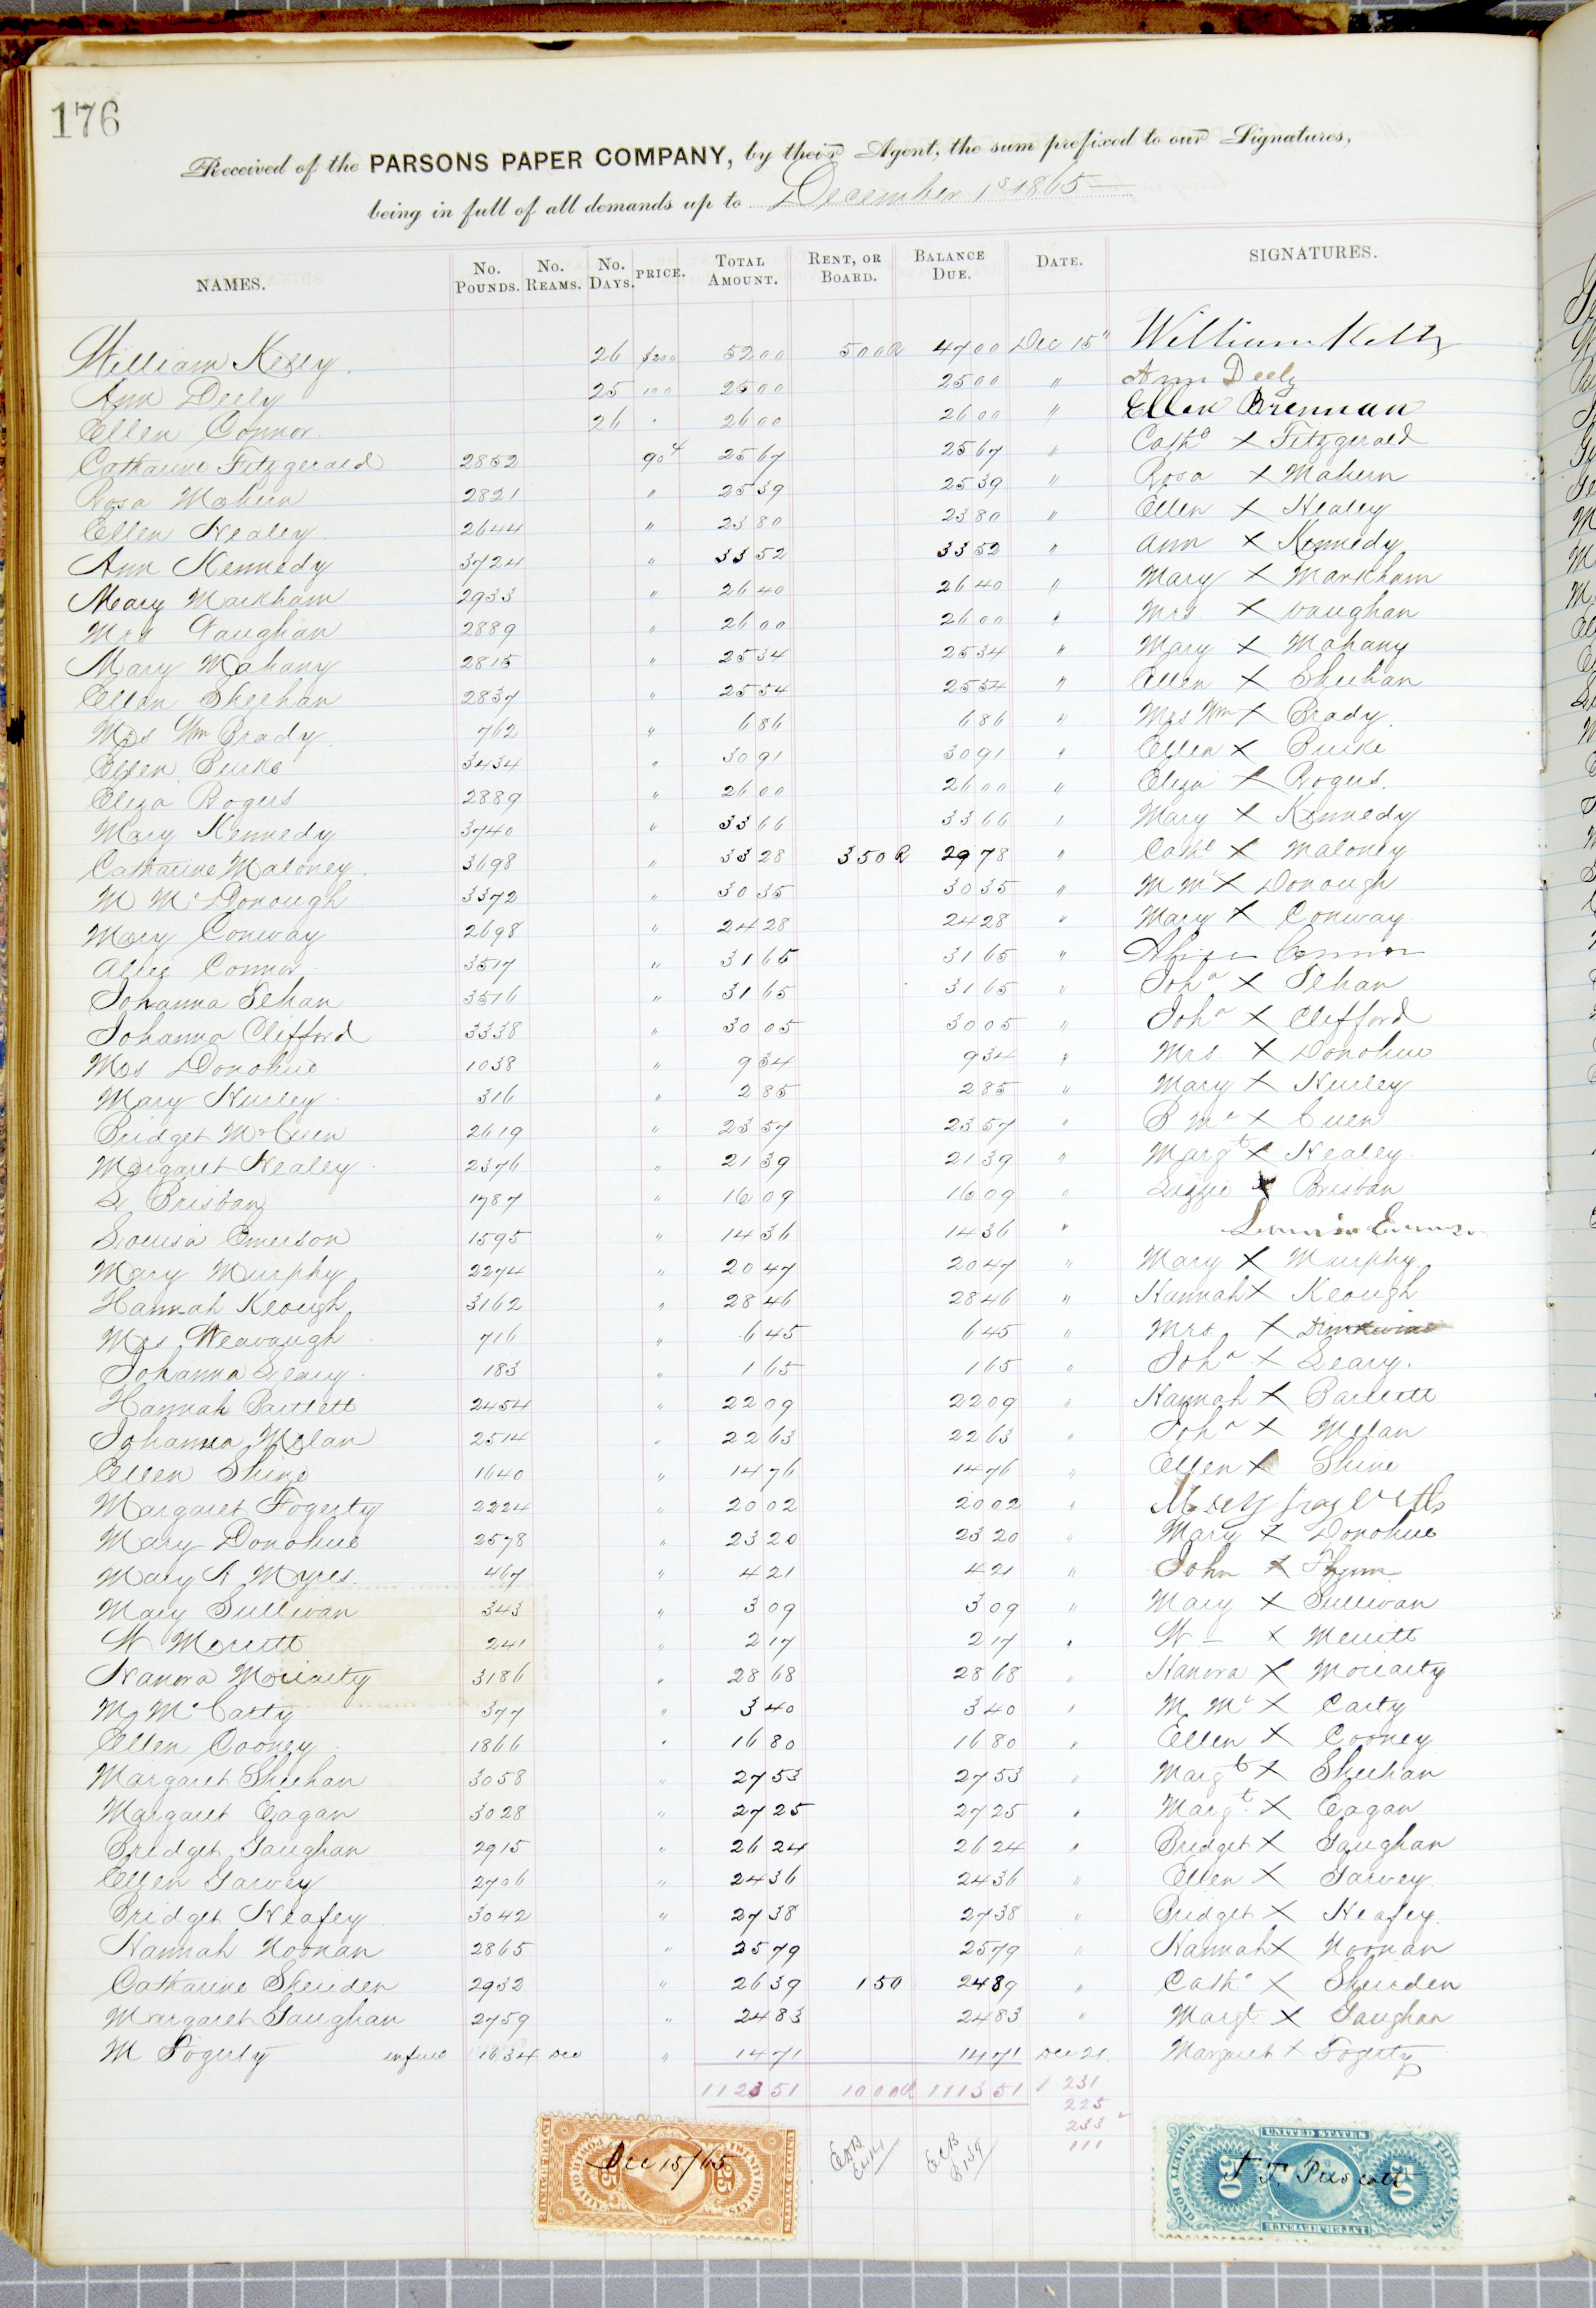 176
Received of the PARSONS PAPER COMPANY, by their Agent, the sum prefixed to our Signatures,
being in full of all demands up to December 1st 1865
NAMES. No. POUNDS. No. REAMS. No. DAYS. PRICE. TOTAL AMOUNT. RENT, OR BOARD. BALANCE DUE. DATE. SIGNATURES.
William Kelly. 26 $200 5200 500R 4700 Dec 15" William Kelly
Ann Deely 25 100 2500 2500 " Ann Deely
Ellen Connor. 26 " 2600 2600 " Ellen Brennan
Catharine Fitzgerald 2852 90¢ 2567 2567 " Cathe X Fitzgerald
Rosa Mahern 2821 " 2539 2539 " Rosa X Mahern
Ellen Healey 2644 " 2380 2380 " Ellen X Healey
Ann Kennedy 3724 " 3352 3352 " Ann X Kennedy
Mary Markham 2933 " 2640 2640 " Mary X Markham
Mrs Vaughan 2889 " 2600 2600 " Mrs X Vaughan
Mary Mahany 2815 " 2534 2534 " Mary X Mahany
Ellen Sheehan 2837 " 2554 2554 " Ellen X Sheehan
Mrs Wm Brady 762 " 686 686 " Mrs Wm X Brady.
Ellen Burke 3434 " 3091 3091 " Ellen X Burke
Eliza Rogers 2889 " 2600 2600 " Eliza X Rogers.
Mary Kennedy 3740 " 3366 3366 " Mary X Kennedy
Catharine Maloney. 3698 " 3328 350R 2978 " Cathe X Maloney
M McDonough 3372 " 3035 3035 " M Mc X Donough
Mary Conway 2698 " 2428 2428 " Mary X Conway
Alice Connor 3517 " 3165 3165 " Connor
Johanna Sehan 3516 " 3165 3165 " Joha X Sehan
Johanna Clifford 3338 " 3005 3005 " Joha X Clifford
Mrs Donohue 1038 " 934 934 " Mrs. X Donohue
Mary Hurley. 316 " 285 285 " Mary X Hurley
Bridget McCuen 2619 " 2357 2357 " B Mc X Cuen
Margaret Healey. 2376 " 2139 2139 " Margt X Healey.
L Brisban 1787 " 1609 1609 " Lizzie X Brisban
Louisa Emerson 1595 " 1436 1436 "
Mary Murphy 2274 " 2047 2047 " Mary X Murphy
Hannah Keough 3162 " 2846 2846 " Hannah X Keough
Mrs 716 " 645 645 " Mrs X
Johanna Leary. 183 " 165 165 " Joha X Leary.
Hannah Bartlett 2454 " 2209 2209 " Hannah X Bartlett
Johanna Melan 2514 " 2263 2263 " Joha X Melan
Ellen Shine 1640 " 1476 1476 " Ellen X Shine
Margaret Fogerty 2224 " 2002 2002 "
Mary Donohue 2578 " 2320 2320 " Mary X Donohue
Mary A Myres. 467 " 421 421 " John X Flynn
Mary Sullivan 343 " 309 309 " Mary X Sullivan
W Merritt 241 " 217 217 " W X Merritt
Hanora Moriarty 3186 " 2868 2868 " Hanora X Moriarty
M McCarty 377 " 340 340 " M Mc X Carty
Ellen Cooney 1866 " 1680 1680 " Ellen X Cooney
Margaret Sheehan 3058 " 2753 2753 " Margt X Sheehan
Margaret Eagan 3028 " 2725 2725 " Margt X Eagan
Bridget Gaughan 2915 " 2624 2624 " Bridget X Gaughan
Ellen Garvey 2706 " 2436 2436 " Ellen X Garvey.
Bridget Heafey 3042 " 2738 2738 " Bridget X Heafey.
Hannah Noonan 2865 " 2579 2579 " Hannah X Noonan
Catharine Sheriden 2932 " 2639 150 2489 " Cathe X Sheriden
Margaret Gaughan 2759 " 2483 2483 " Margt X Gaughan
M Fogerty in full 1634 Dec " 1471 1471 Dec 21. Margaret X Fogerty
112351 1000R 111351 231
225
233
111
Dec 15/65
25
UNITED STATES
INTER. REVENUE
SURETY BOND
FIFTY CENTS
50 50